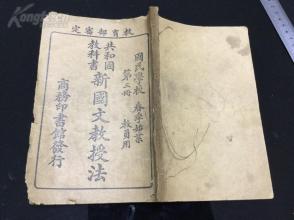 教育部審定
國民學校 春季始業
第二冊 教員用
共和國
教科書
新國文教授法
商務印書館發行